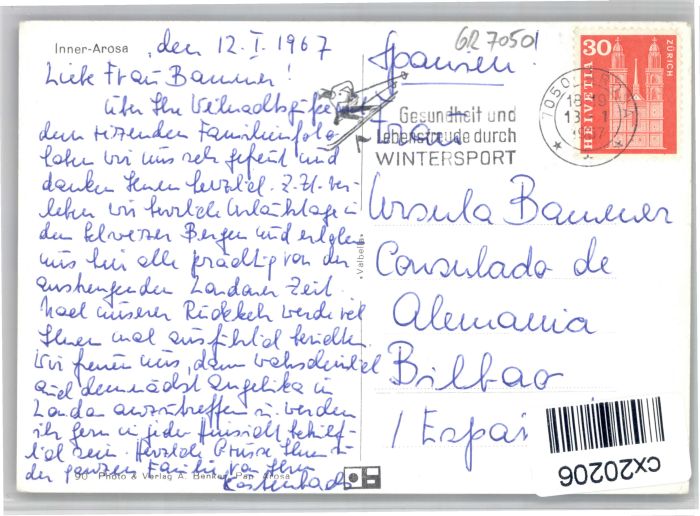 Inner-Arosa, den 12. I. 1967
Liebe Frau Bammer!
Über Ihre Weihnachtsgrüße
dem reizenden Familienfoto
haben wir uns sehr gefreut und
danken Ihnen herzlich. Z.Zt. ver-
leben wir herrliche Urlaubstage in
den Schweizer Bergen und erholen
uns hier alle prächtig von der
anstrengenden Londoner Zeit.
Nach unserer Rückkehr werde ich
Ihnen mal ausführlich berichten.
Wir freuen uns, dann wahrscheinlich
auch demnächst Angelika in
London anzutreffen u. werden
ihr gern in jeder Hinsicht behilf-
lich sein. Herzliche Grüsse Ihnen u.
der ganzen Familie von Ihrer
90 Photo & Verlag A. Arosa
«Valbella»
GR 7050
Spanien!
Gesundheit und
Lebensfreude durch
WINTERSPORT
30
HELVETIA
ZÜRICH
7050
13. 1
1967
Frau
Ursula Bammer
Consulado de
Alemania
Bilbao
/ Espa
cx20206